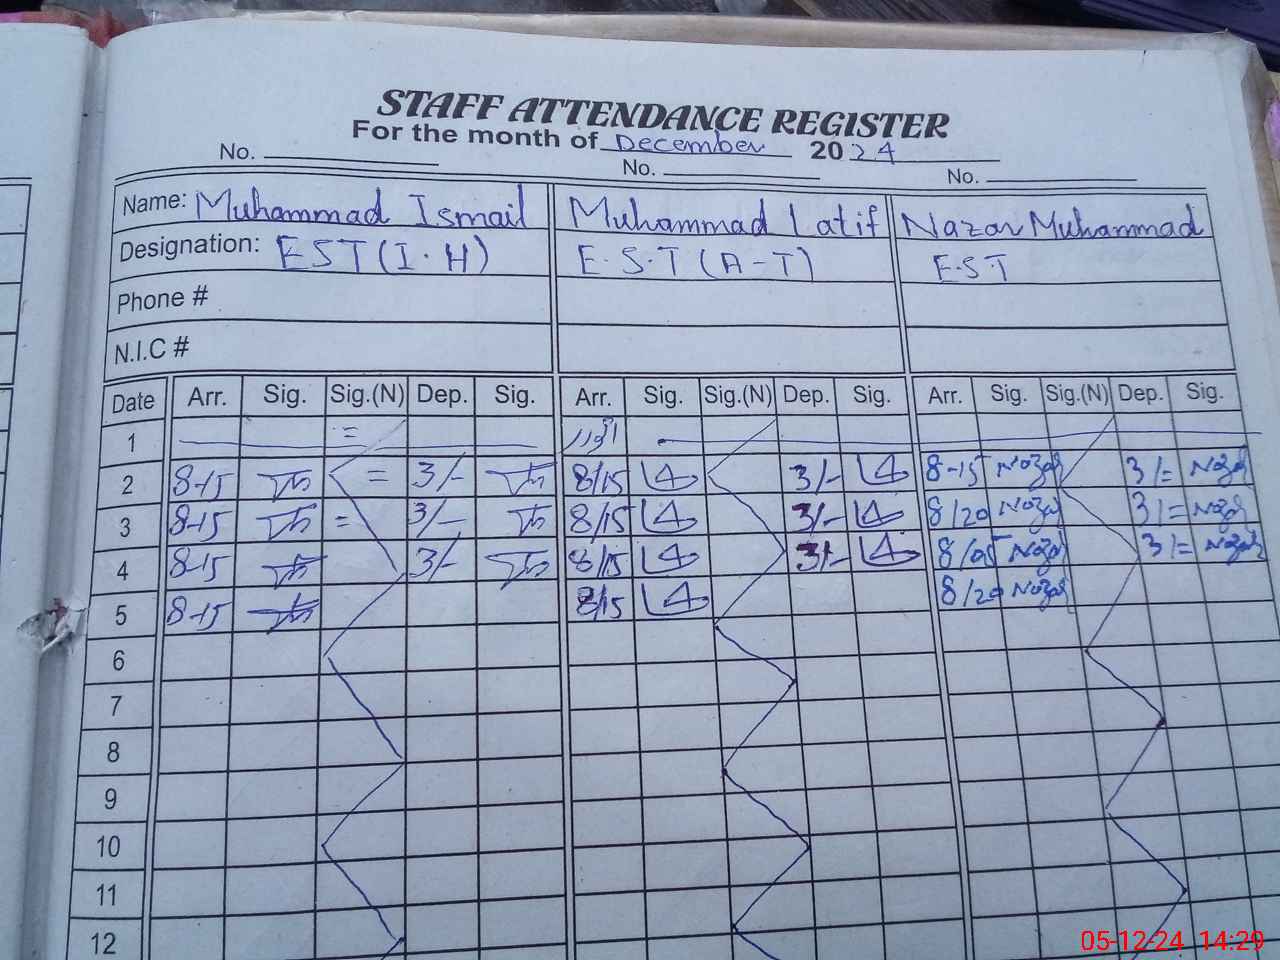 STAFF ATTENDANCE REGISTER
For the month of December 2024
No. No. No.
Name: Muhammad Ismail Muhammad Latif Nazar Muhammad
Designation: EST (I.H) E.S.T (A-T) E.S.T
Phone #
N.I.C #
Date Arr. Sig. Sig.(N) Dep. Sig. Arr. Sig. Sig.(N) Dep. Sig. Arr. Sig. Sig.(N) Dep. Sig.
1 = اتوار
2 8-15 = 3/- 8/15 3/- 8-15 Nazar 3/= Nazar
3 8-15 = 3/- 8/15 3/- 8/20 Nazar 3/= Nazar
4 8-15 3/- 8/15 3/- 8/05 Nazar 3/= Nazar
5 8-15 8/15 8/20 Nazar
6
7
8
9
10
11
12
05-12-24 14:29